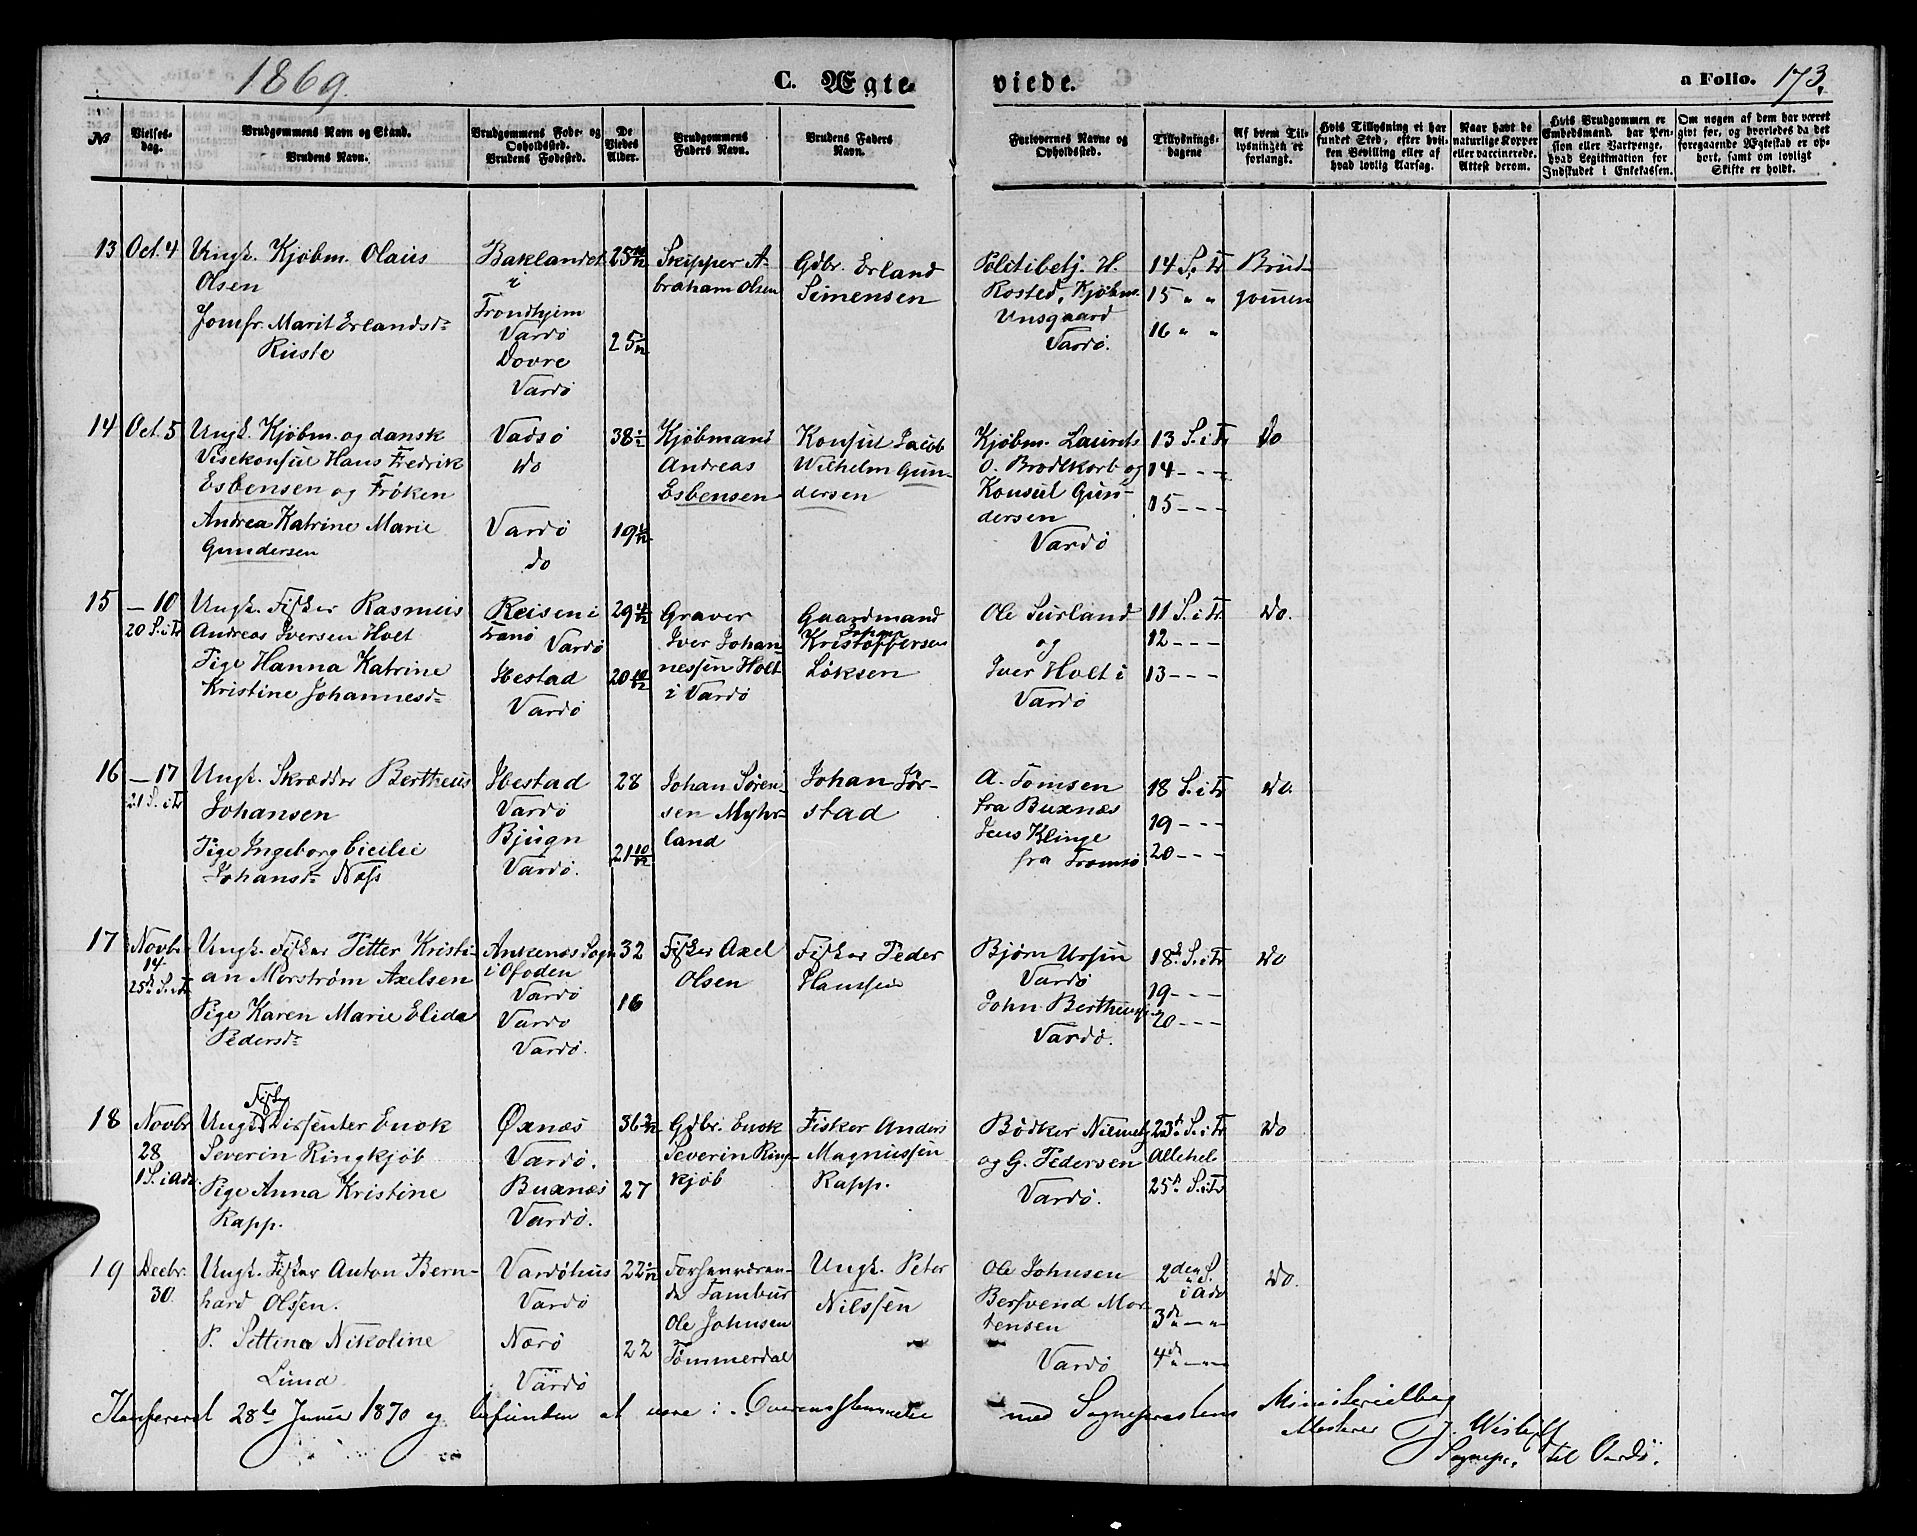 1869.
C. Ægte
viede.
a Folio. 173.
No
Vielses-
dag.
Brudgommens Navn og Stand.
Brudens Navn.
Brudgommens Føde- og
Opholdssted.
Brudens Fødested.
De
Viedes
Alder.
Brudgommens
Faders Navn.
Brudens Faders
Navn.
Forlovernes Navne og
Opholdssted.
Tillysnings-
dagene
Af hvem Til-
lysningen er
forlangt.
Hvis Tillysning ei har
fundet Sted, efter hvil-
ken Bevilling eller af
hvad lovlig Aarsag.
Naar havt de
naturlige Kopper
eller vaccinerede.
Attest derom.
Hvis Brudgommen er
Embedsmand, har Pen-
sion eller Vartpenge,
hvad Legitimation for
Indskudet i Enkekassen.
Om nogen af dem har været
gift før, og hvorledes da det
foregaaende Ægteskab er op-
hørt, samt om lovligt
Skifte er holdt.
13
Oct. 4
Ungk. Kjøbm. Olaus
Olsen
Jomfr. Marit Erlandsd.
Ruste
Baklandet
i
Trondhjem
Vardö
Dovre
Vardö
25
25
Skipper A-
braham Olsen
Gdbr. Erland
Simensen
Politibetj. H.
Rosted, Kjøbm.
Unsgaard
Vardö.
14 S. Tr
15 " "
16 " "
Brud-
gommen
14
Oct. 5
Ungk. Kjøbm. og dansk
Visekonsul Hans Fredrik
Esbensen og Frøken
Andrea Katrine Marie
Gundersen
Vadsö
do
Vardö
do
38
19
Kjøbmand
Andreas
Esbensen
Konsul Jacob
Wilhelm Gun-
dersen
Kjøbm. Laurits
O. Brodtkorb og
Konsul Gun-
dersen
Vardö
13 S. i Tr
14 - - -
15 - - -
Do
15
- 10
20 S. i Tr
Ungk. Fisker Rasmus
Andreas Iversen Holt
Pige Hanna Katrine
Kristine Johannesd.
Reisen i
Tranö
Vardö
Ibestad
Vardö
29
20 10/12
Graver
Iver Johan-
nessen Holt
i Vardö
Gaardmand
Johan
Kristoffersen
Løksen
Ole Surland
og
Iver Holt i
Vardö
11 S. i Tr.
12 - - -
13 - - -
Do.
16
- 17
21 S. i Tr
Ungk. Skrædder Bertheus
Johansen
Pige Ingeborg Cicilie
Johansd. Næss
Ibestad
Vardö
Bjugn
Vardö.
28
21 10/12
Johan Søren-
sen Myhr-
land
Johan Jør-
stad
A. Tomsen
fra Buxnæs
Jens Klinge
fra Tromsö
18 S. i Tr
19 - - -
20 - - -
Do.
17
Novbr
14
25de S. i Tr
Ungk. Fisker Petter Kristi-
an Morstrøm Axelsen
Pige Karen Marie Elida
Pedersd.
Ankenæs Sogn
i Ofoden
Vardö
Vardö
Vardö.
32
16
Fisker Axel
Olsen
Fisker Peder
Hansen
Bjørn Ursin
Vardö
John Bertheus
Vardö.
18de S. i Tr
19 - - -
20 - - -
Do
18
Novbr
28
1 S. i Adv.
Fisker
Ungk. Dissenter Enok
Severin Ringkjøb
Pige Anna Kristine
Rapp.
Øxnæs
Vardö.
Buxnæs
Vardö.
36
27
Gdbr. Enok
Severin Ring-
kjøb
Fisker Anders
Magnussen
Rapp.
Bödker Niemetz
og G. Pedersen
Vardö.
23de S. i Tr
Allehel.
25de S. i Tr
Do
19
Decbr.
30
Ungk. Fisker Anton Bern-
hard Olsen.
P. Settina Nikoline
Lund
Vardöhus
Vardö
Nærö
Vardö
22
22
Forhenværen-
de Tambur
Ole Johnsen
Tømmerdal
Ungk. Peter
Nilssen
Ole Johnsen
Bersvend Mor-
tensen
Vardö
2den S.
i Adv
3de - "
4de - - -
Do.
Konfereret 28de Januar 1870 og befunden at være i Overensstemmelse med Sognepræstens Ministerialbog
Attesterer J. Wisløff
Sognepr. til Vardö.